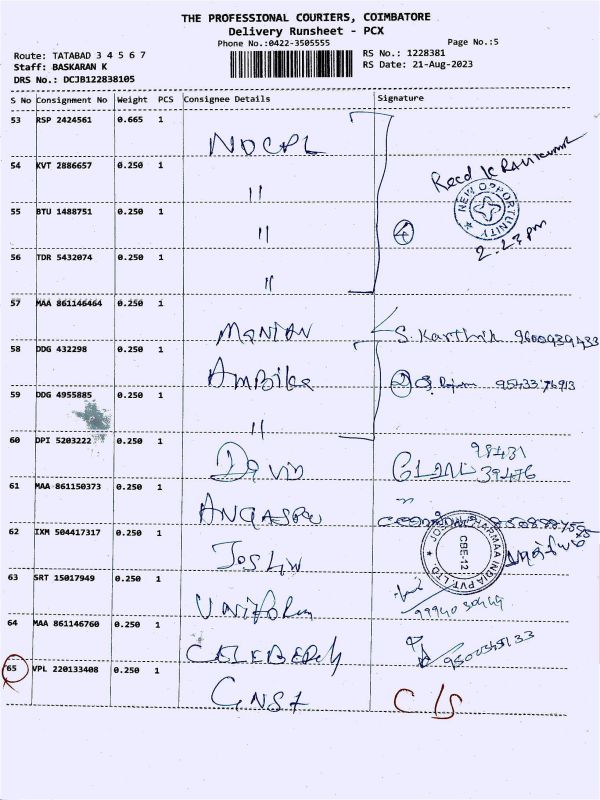 THE PROFESSIONAL COURIERS, COIMBATORE
Delivery Runsheet - PCX
Phone No.:0422-3505555
Page No.:5
Route: TATABAD 3 4 5 6 7
RS No.: 1228381
Staff: BASKARAN K
RS Date: 21-Aug-2023
DRS No.: DCJB122838105
S No Consignment No Weight PCS Consignee Details Signature
53 RSP 2424561 0.665 1
NDCPL
54 KVT 2886657 0.250 1
"
Recd K RAVIKUMAR
NEW OPPORTUNITY
55 BTU 1488751 0.250 1
" 4
2.27 pm
56 TDR 5432074 0.250 1
"
57 MAA 861146464 0.250 1
MANIAN S. Karthik
58 DDG 432298 0.250 1
Ambika 2
59 DDG 4955885 0.250 1
"
60 DPI 5203222 0.250 1
David 98431
39476
61 MAA 861150373 0.250 1
62 IXM 504417317 0.250 1
PHARMAA INDIA PVT. LTD.
CBE-12
63 SRT 15017949 0.250 1
Uniform 99940 30449
64 MAA 861146760 0.250 1
65 VPL 220133408 0.250 1
C/S